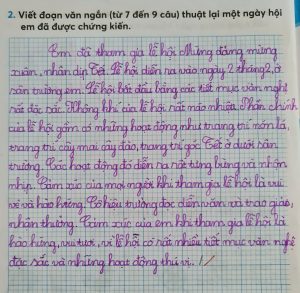 2. Viết đoạn văn ngắn (từ 7 đến 9 câu) thuật lại một ngày hội
em đã được chứng kiến.
Em đã tham gia lễ hội Mừng đảng mừng
xuân, nhân dịp Tết. Lễ hội diễn ra vào ngày 2 tháng 2, ở
sân trường em. Lễ hội bắt đầu bằng các tiết mục văn nghệ
rất đặc sắc. Không khí của lễ hội rất náo nhiệt. Phần chính
của lễ hội gồm có những hoạt động như trang trí nón lá,
trang trí cây mai cây đào, trang trí góc Tết ở dưới sân
trường. Các hoạt động đó diễn ra rất tưng bừng và nhộn
nhịp. Cảm xúc của mọi người khi tham gia lễ hội là vui
vẻ và hào hứng. Cô hiệu trưởng đọc diễn văn và trao giải,
nhận thưởng. Cảm xúc của em khi tham gia lễ hội là
hào hứng, vui tươi, vì lễ hội có rất nhiều tiết mục văn nghệ
đặc sắc và những hoạt động thú vị.